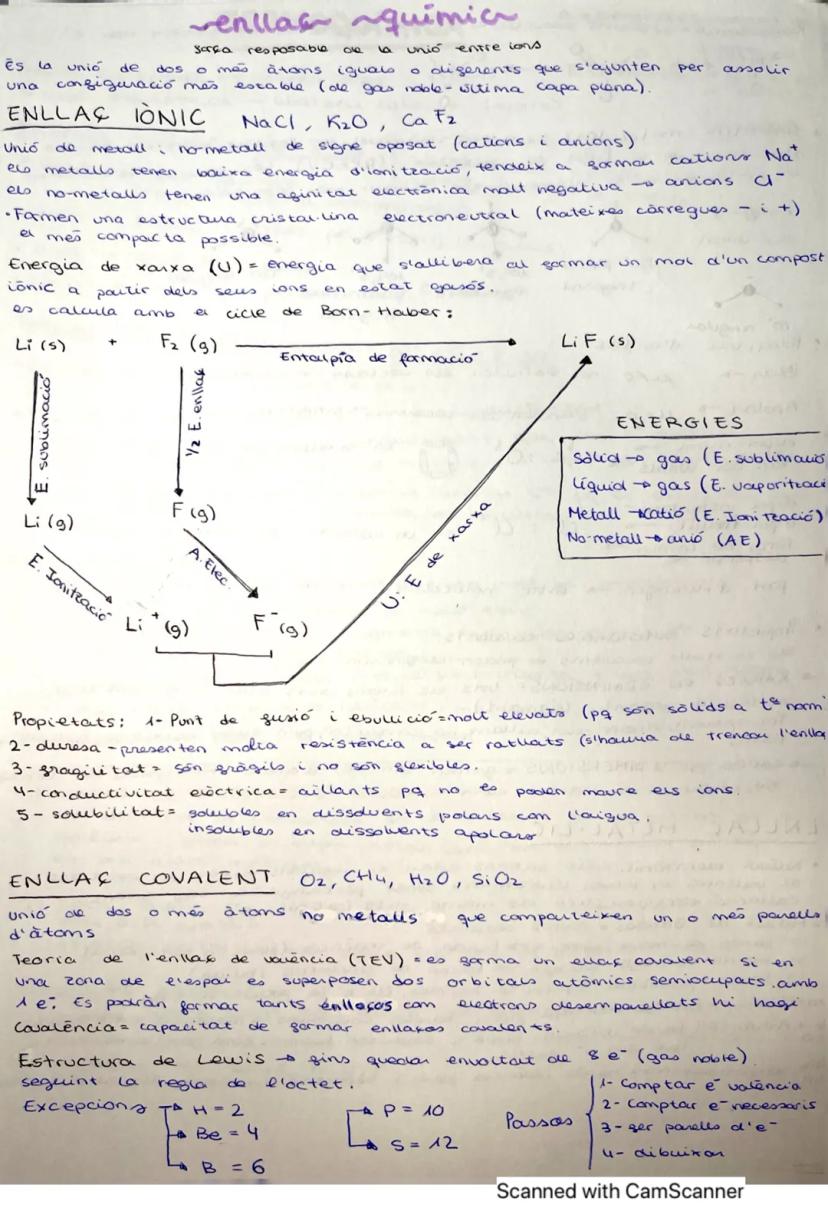 enllaç químic
força resposable de la unió entre ions
És la unió de dos o més àtoms iguals o diferents que s'ajunten per assolir
una configuració més estable (de gas noble - última capa plena).
ENLLAÇ IÒNIC NaCl, K2O, CaF2
Unió de metall i no-metall de signe oposat (cations i anions)
els metalls tenen baixa energia d'ionització, tendeix a formar cations Na+
els no-metalls tenen una afinitat electrònica molt negativa → anions Cl-
• Formen una estructura cristal·lina electroneutral (mateixes càrregues - i +)
el més compacta possible.
Energia de xarxa (U) = energia que s'allibera al formar un mol d'un compost
iònic a partir dels seus ions en estat gasós.
es calcula amb el cicle de Born-Haber:
Li (s) + F2 (g) → Li F (s)
Entalpía de formació
E. sublimació
1/2 E. enllaç
Li (g)
F (g)
E. Ionització
A. Elec.
Li+ (g)
F- (g)
U: E de xarxa
ENERGIES
Sòlid → gas (E. sublimació
Líquid → gas (E. vaporitzaci
Metall → catió (E. Ionització)
No-metall → anió (AE)
Propietats: 1- Punt de fusió i ebullició = molt elevats (pq són sòlids a tª norm
2- duresa - presenten molta resistència a ser ratllats (s'hauria de trencar l'enlla
3- fragilitat = són fràgils i no són flexibles.
4- conductivitat elèctrica = aïllants pq no es poden moure els ions.
5- solubilitat = solubles en dissolvents polars com l'aigua.
insolubles en dissolvents apolars
ENLLAÇ COVALENT O2, CH4, H2O, SiO2
Unió de dos o més àtoms no metalls que comparteixen un o més parells
d'àtoms
Teoria de l'enllaç de valència (TEV) = es forma un enllaç covalent si en
una zona de l'espai es superposen dos orbitals atòmics semiocupats amb
1 e-. Es podràn formar tants enllaços com electrons desemparellats hi hagi
Covalència = capacitat de formar enllaços covalents.
Estructura de Lewis → fins quedar envoltat de 8 e- (gas noble)
seguint la regla de l'octet.
Excepcions → H = 2
→ Be = 4
→ B = 6
→ P = 10
→ S = 12
Passos
1- Comptar e- valència
2- Comptar e- necessaris
3- fer parells d'e-
4- dibuixar
Scanned with CamScanner